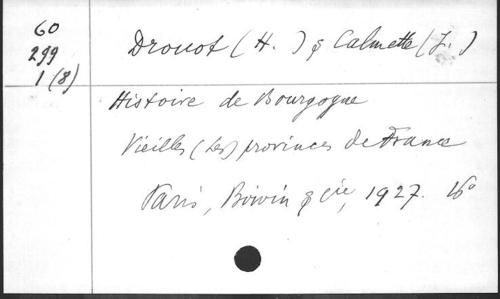 60
299
1 (8)
Drouot (H.) & Calmette (J.)
Histoire de Bourgogne
Vieilles (Les) provinces de France
Paris, Boivin & Cie, 1927. 16°